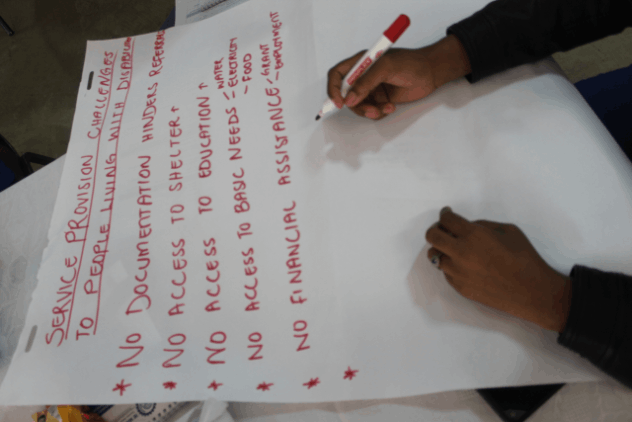 SERVICE PROVISION CHALLENGES
TO PEOPLE LIVING WITH
* NO DOCUMENTATION HINDERS
* NO ACCESS TO SHELTER ↑
* NO ACCESS TO EDUCATION ↑
* NO ACCESS TO BASIC NEEDS = WATER
- ELECTRICITY
- FOOD
* NO FINANCIAL ASSISTANCE - GRANT
- EMPLOYMENT
*